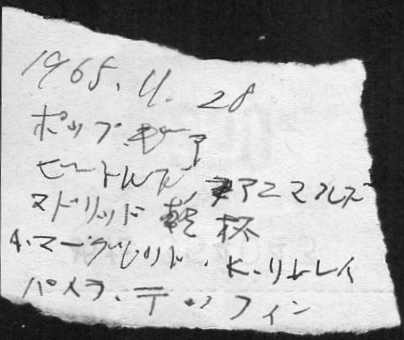 1965.11.28
ポップ・ギア
ビートルズ、アニマルズ
マドリッド 乾杯
A.マーグリット. K.リトレイ
パメラ・ティフィン